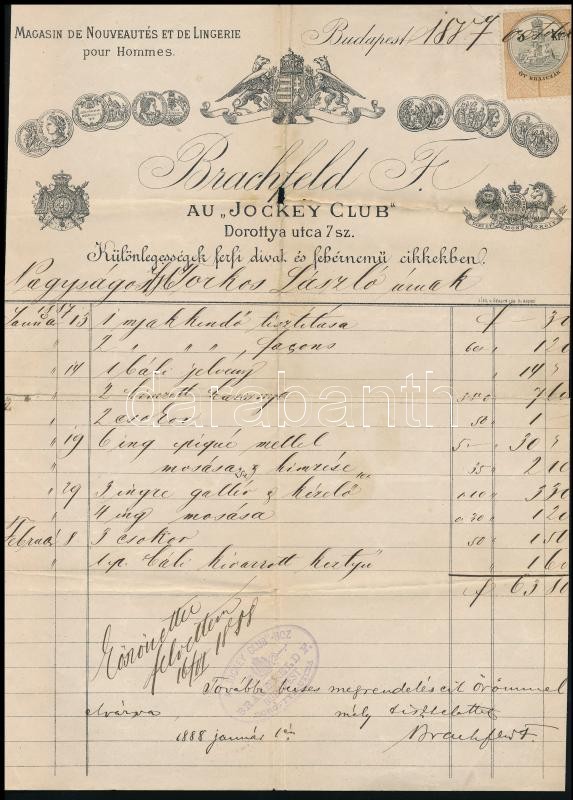 MAGASIN DE NOUVEAUTÉS ET DE LINGERIE
pour Hommes.
Budapest 1887
ÖT KRAJCZÁR
Brachfeld F.
AU „JOCKEY CLUB“
Dorottya utca 7 sz.
Különlegességek férfi divat és fehérnemű cikkekben.
Nagyságos Torkos László úrnak
1887
Januá 13 1 nyakkendő tisztítása f – 30
" " 2 " " façons 60 " 120
" 14 1 báli jelvény " 14
" " 2
" " 2 csokor 50 " 1
" 19 6 ing piqué mellel 5 – 30
" mosása & hímzése 35 " 210
" 29 3 ingre gallér & kézelő 110 " 330
" " 4 ing mosása 0.30 " 120
Február 8 3 csokor 50 " 150
" " 1 p. báli kivarrott kesztyű " 160
f 63.80
darabanth
Köszönettel
felvettem
1888
További becses megrendeléseit örömmel
elvárva mély tisztelettel
1888 január 1én Brachfeld F.